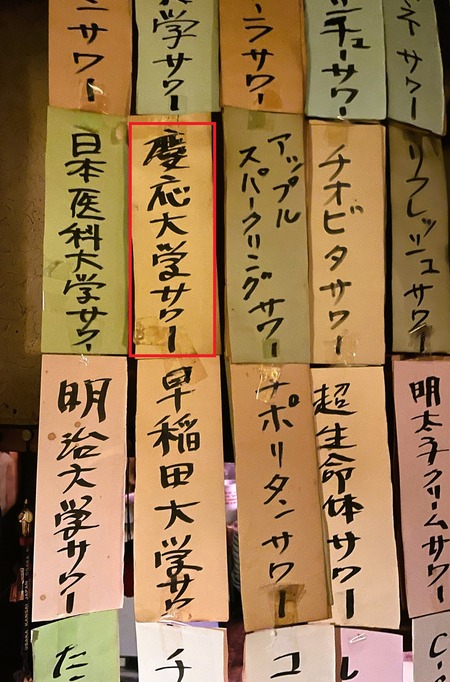 サワー
チューサワー
ラサワー
学サワー
ンサワー
リフレッシュサワー
チオビタサワー
アップル
スパークリングサワー
慶応大学サワー
日本医科大学サワー
明太子クリームサワー
超生命体サワー
ナポリタンサワー
早稲田大学サワー
明治大学サワー
C.
コ
チ
た